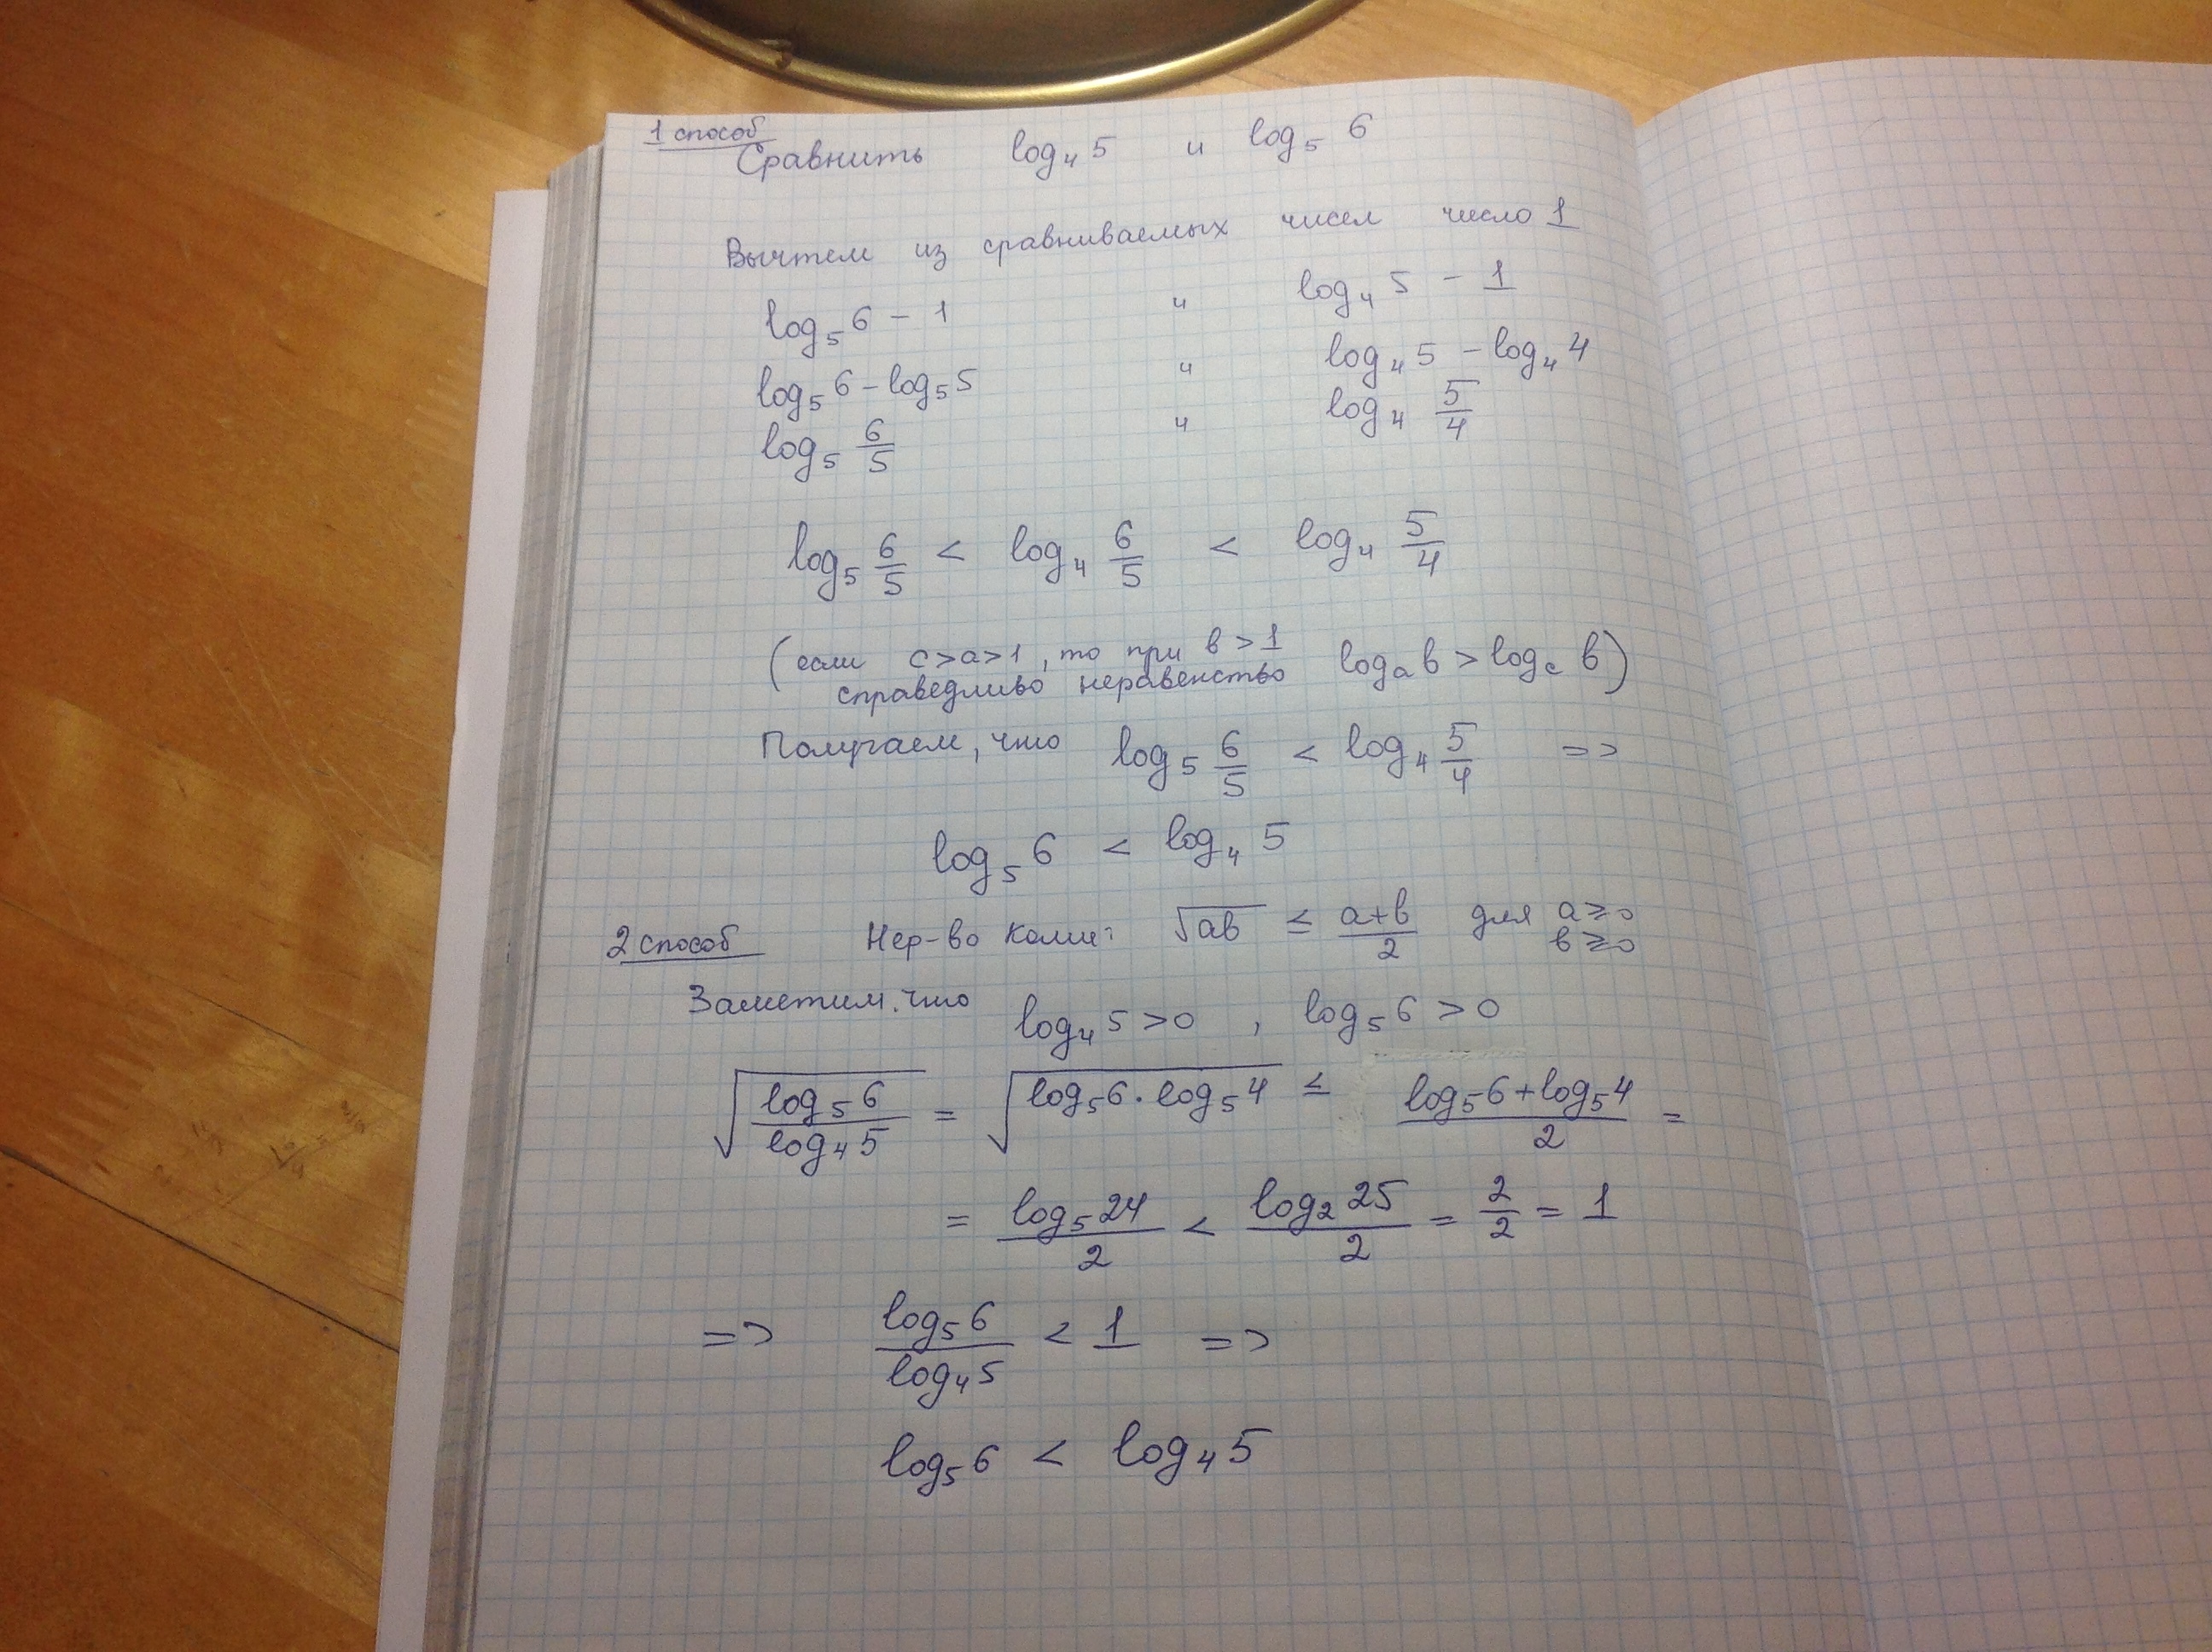 1 способ
Сравнить log₄ 5 и log₅ 6
Вычтем из сравниваемых чисел число 1
log₅ 6 − 1 и log₄ 5 − 1
log₅ 6 − log₅ 5 и log₄ 5 − log₄ 4
log₅ 6/5 и log₄ 5/4
log₅ 6/5 < log₄ 6/5 < log₄ 5/4
(если c>a>1, то при b>1
справедливо неравенство logₐ b > log_c b)
Получаем, что log₅ 6/5 < log₄ 5/4 =>
log₅ 6 < log₄ 5
2 способ Нер-во Коши: √(ab) ≤ (a+b)/2 для a≥0 b≥0
Заметим, что log₄ 5 > 0 , log₅ 6 > 0
√(log₅ 6 / log₄ 5) = √(log₅ 6 · log₅ 4) ≤ (log₅ 6 + log₅ 4)/2 =
= log₅ 24 / 2 < log₂ 25 / 2 = 2/2 = 1
=> log₅ 6 / log₄ 5 < 1 =>
log₅ 6 < log₄ 5